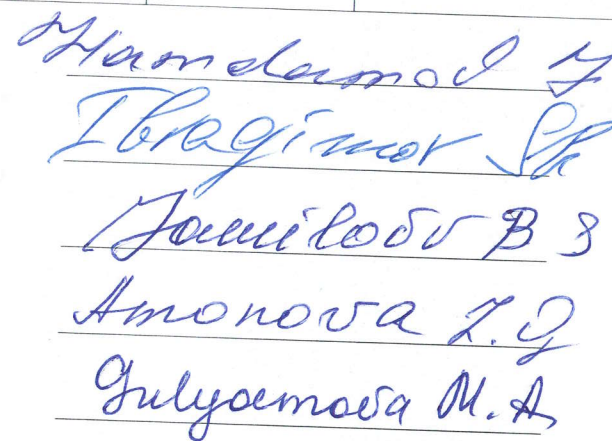 Hamdamov J
Ibragimov Sh
Jamilov B B
Amonova Z. O
Gulyamova M. A